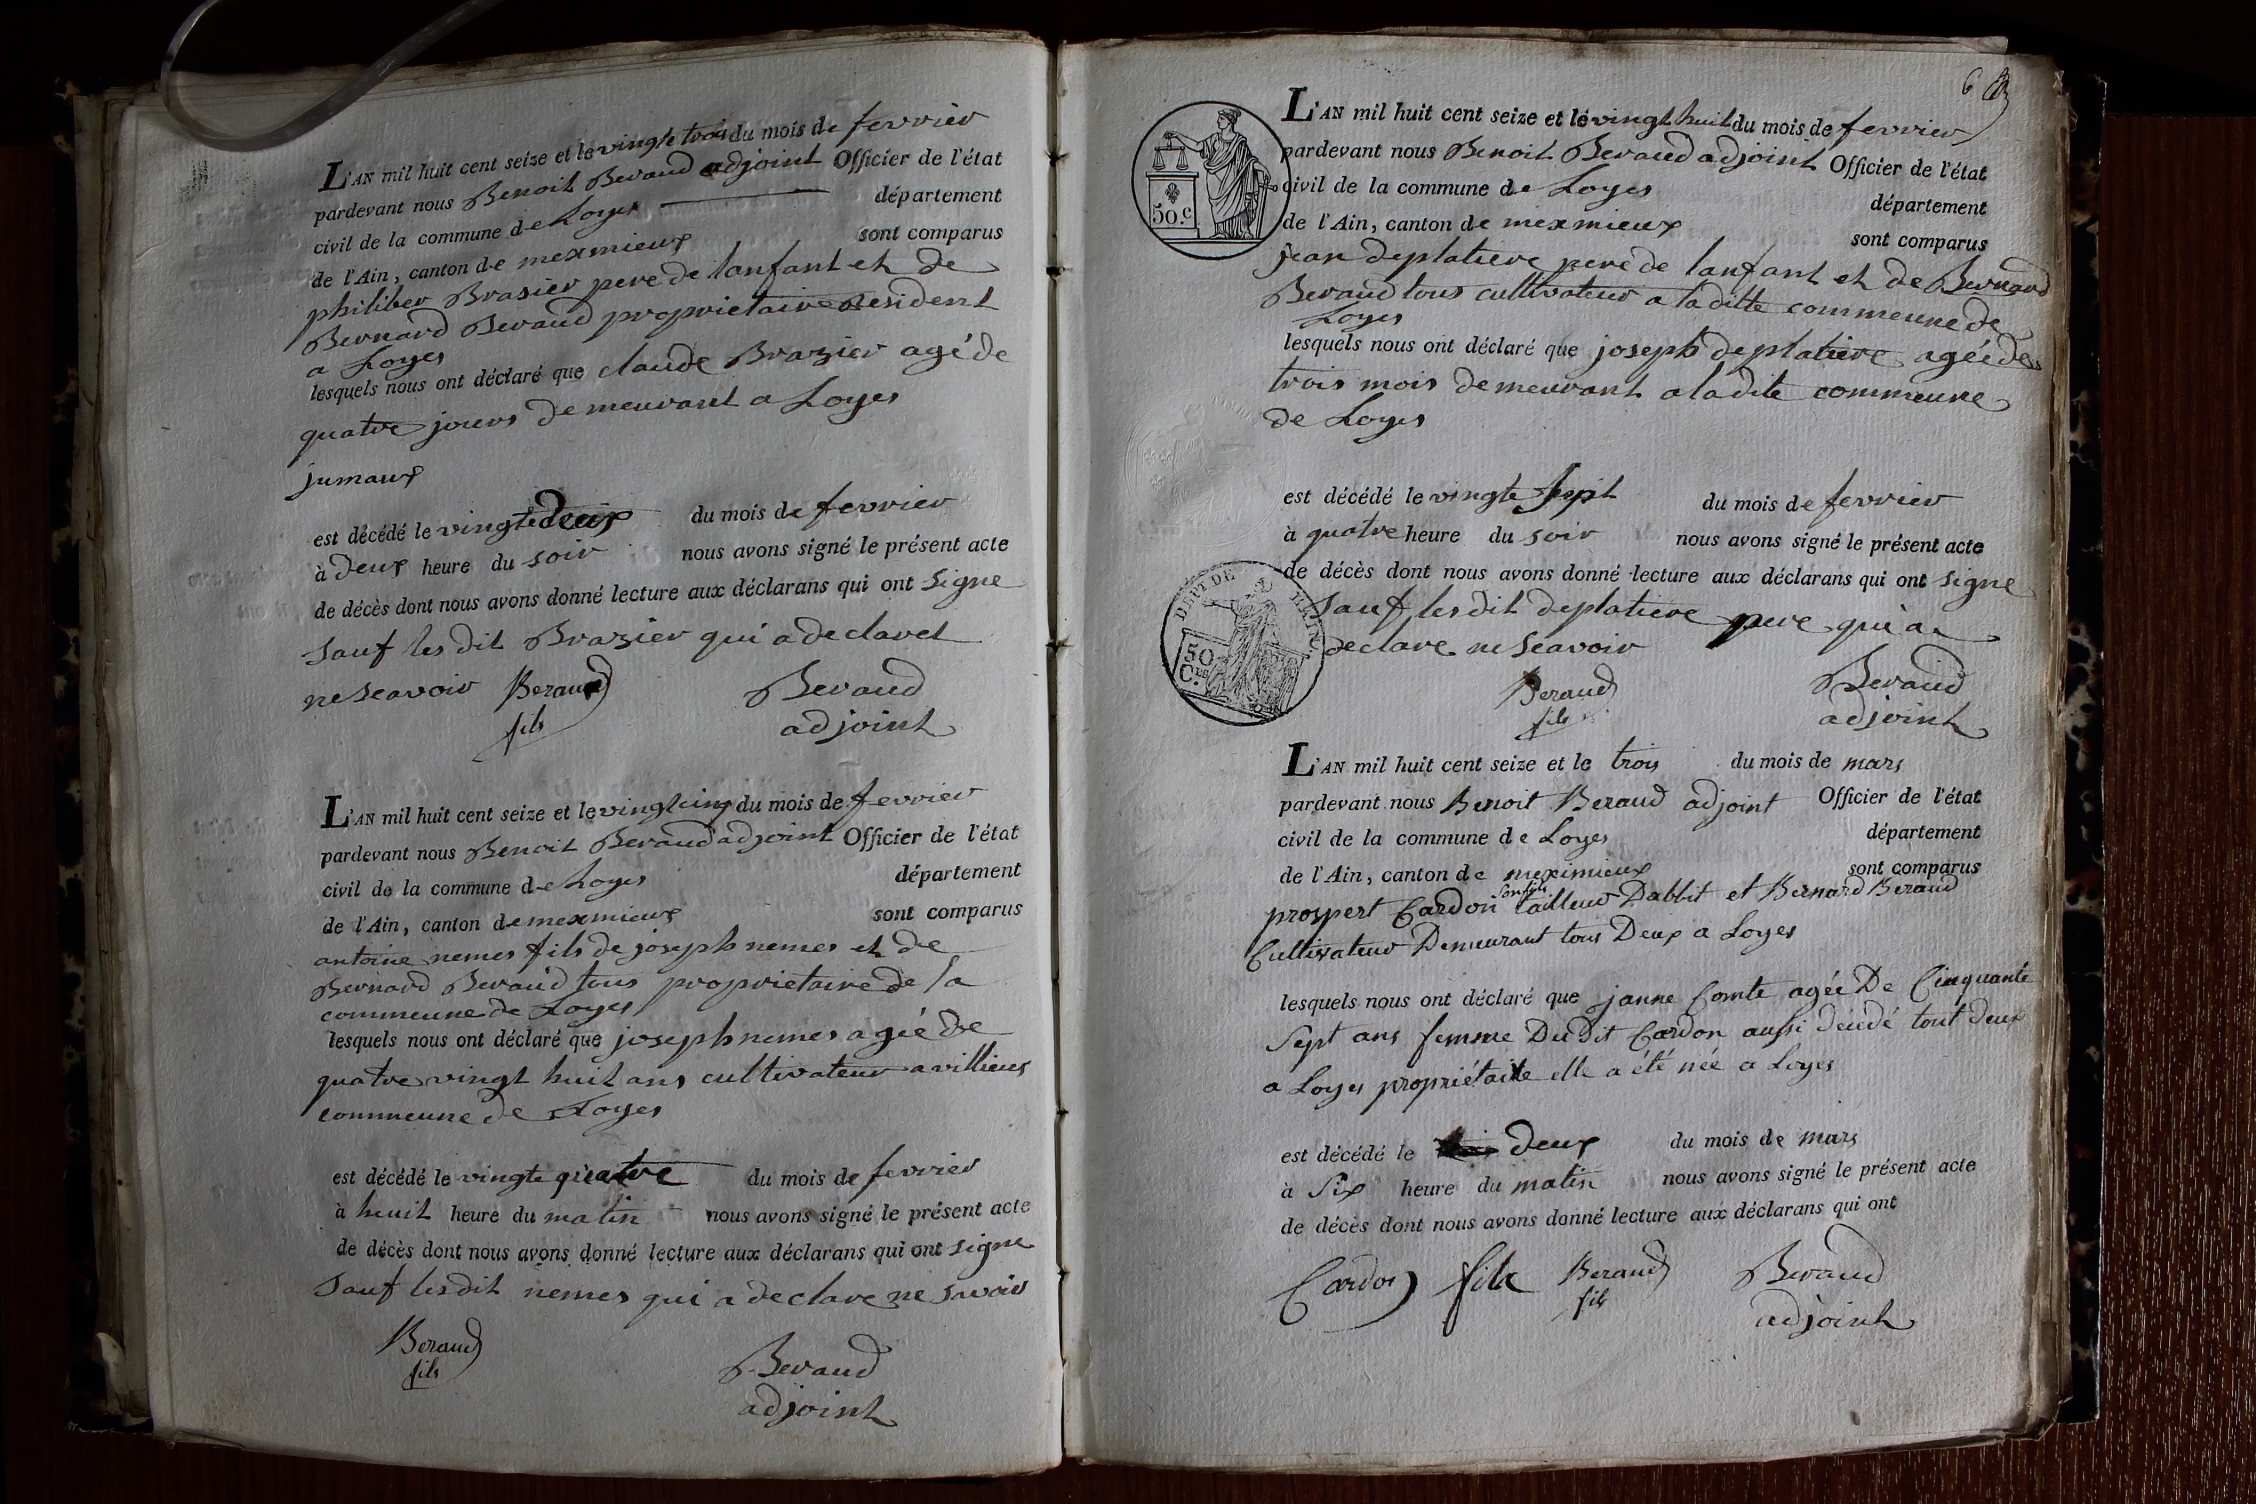 L'AN mil huit cent seize et le vingte trois du mois de fevrier
pardevant nous Benoit Beraud adjoint Officier de l'état
civil de la commune de Loyes département
de l'Ain, canton de meximieux sont comparus
philiber Brasier pere de lanfant et de
Bernard Beraud proprietaire resident
a Loyes
lesquels nous ont déclaré que claude Brazier agé de
quatre jours demeurant a Loyes
jumaux
est décédé le vingte deux du mois de fevrier
à deux heure du soir nous avons signé le présent acte
de décès dont nous avons donné lecture aux déclarans qui ont signe
sauf les dit Brazier qui a declaret
ne scavoir Beraud Beraud
fils adjoint
L'AN mil huit cent seize et le vingt cinq du mois de fevrier
pardevant nous Benoit Beraud adjoint Officier de l'état
civil de la commune de Loyes département
de l'Ain, canton de meximieux sont comparus
antoine nemes fils de joseph nemes et de
Bernard Beraud tous proprietaire de la
commeune de Loyes
lesquels nous ont déclaré que joseph nemes agée de
quatre vingt huit ans cultivateur a villieus
commeune de Loyes
est décédé le vingte quatre du mois de fevrier
à huit heure du matin nous avons signé le présent acte
de décès dont nous avons donné lecture aux déclarans qui ont signe
sauf les dit nemes qui a declare ne savoir
Beraud Beraud
fils adjoint
6
L'AN mil huit cent seize et le vingt huit du mois de fevrier
pardevant nous Benoit Beraud adjoint Officier de l'état
civil de la commune de Loyes département
de l'Ain, canton de meximieux sont comparus
50.c
jean deplatiere pere de lanfant et de Bernard
Beraud tous cultivateur a la ditte commeune de
Loyes
lesquels nous ont déclaré que joseph deplatiere agée de
trois mois demeurant a la dite commeune
de Loyes
est décédé le vingte sept du mois de fevrier
à quatre heure du soir nous avons signé le présent acte
de décès dont nous avons donné lecture aux déclarans qui ont signe
DEPT DE L'AIN
50 C.es
sauf les dit deplatiere pere qui a
declare ne scavoir
Beraud Beraud
fils adjoint
L'AN mil huit cent seize et le trois du mois de mars
pardevant nous Benoit Beraud adjoint Officier de l'état
civil de la commune de Loyes département
de l'Ain, canton de meximieux sont comparus
son fils
prospert Cardon tailleur Dabbit et Bernard Beraud
Cultivateur Demeurant tous Deux a Loyes
lesquels nous ont déclaré que janne Comte agée De Cinquante
Sept ans femme Du Dit Cardon aussi décédé tout deux
a Loyes propriétaire elle a été née a Loyes
est décédé le deux du mois de mars
à Six heure du matin nous avons signé le présent acte
de décès dont nous avons donné lecture aux déclarans qui ont
Cardon fils Beraud Beraud
fils adjoint